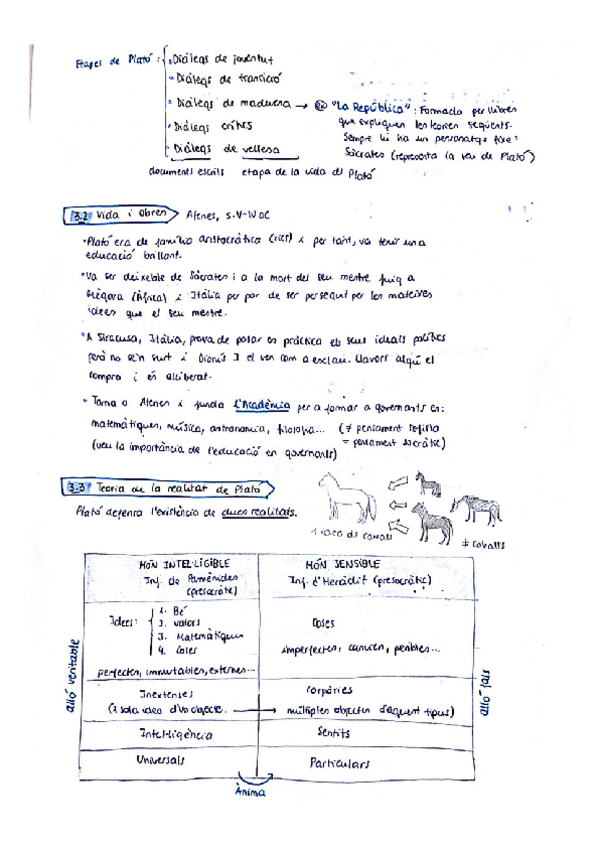 Etapes de Plató:
• Diàlegs de joventut
• Diàlegs de transició
• Diàlegs de maduresa → "La República": Formada per llibres
que expliquen les teories següents.
Sempre hi ha un personatge fixe:
Sòcrates (representa la veu de Plató)
• Diàlegs crítics
• Diàlegs de vellesa
documents escrits etapa de la vida de Plató
3.2 Vida i Obres Atenes, s.V-IV aC
• Plató era de família aristocràtica (rica) i per tant, va tenir una
educació brillant.
• Va ser deixeble de Sòcrates i a la mort del seu mestre fuig a
(Àfrica) i Itàlia per por de ser perseguit per les mateixes
idees que el seu mestre.
• A Siracusa, Itàlia, prova de posar en pràctica els seus ideals polítics
però no se'n surt i Dionís I el ven com a esclau. Llavors algú el
compra i és alliberat.
• Torna a Atenes i funda l'Acadèmia per a formar a governants en:
matemàtiques, música, astronomia, filosofia... (≠ pensament sofista
(veu la importància de l'educació en governants) = pensament socràtic)
3.3 Teoria de la realitat de Plató
Plató defensa l'existència de dues realitats.
1 idea de cavall
≠ cavalls
MÓN INTEL·LIGIBLE
Inf. de Parmènides
(presocràtic)
MÓN SENSIBLE
Inf. d'Heràclit (presocràtic)
Idees:
1. Bé
2. Valors
3. Matemàtiques
4. Coses
perfectes, immutables, externes...
Coses
imperfectes, canvien, peribles...
allò veritable
allò fals
Inextenses
(1 sola idea d'un objecte.
Corpòries
múltiples objectes d'aquest tipus)
Intel·ligència
Sentits
Universals
Particulars
Ànima